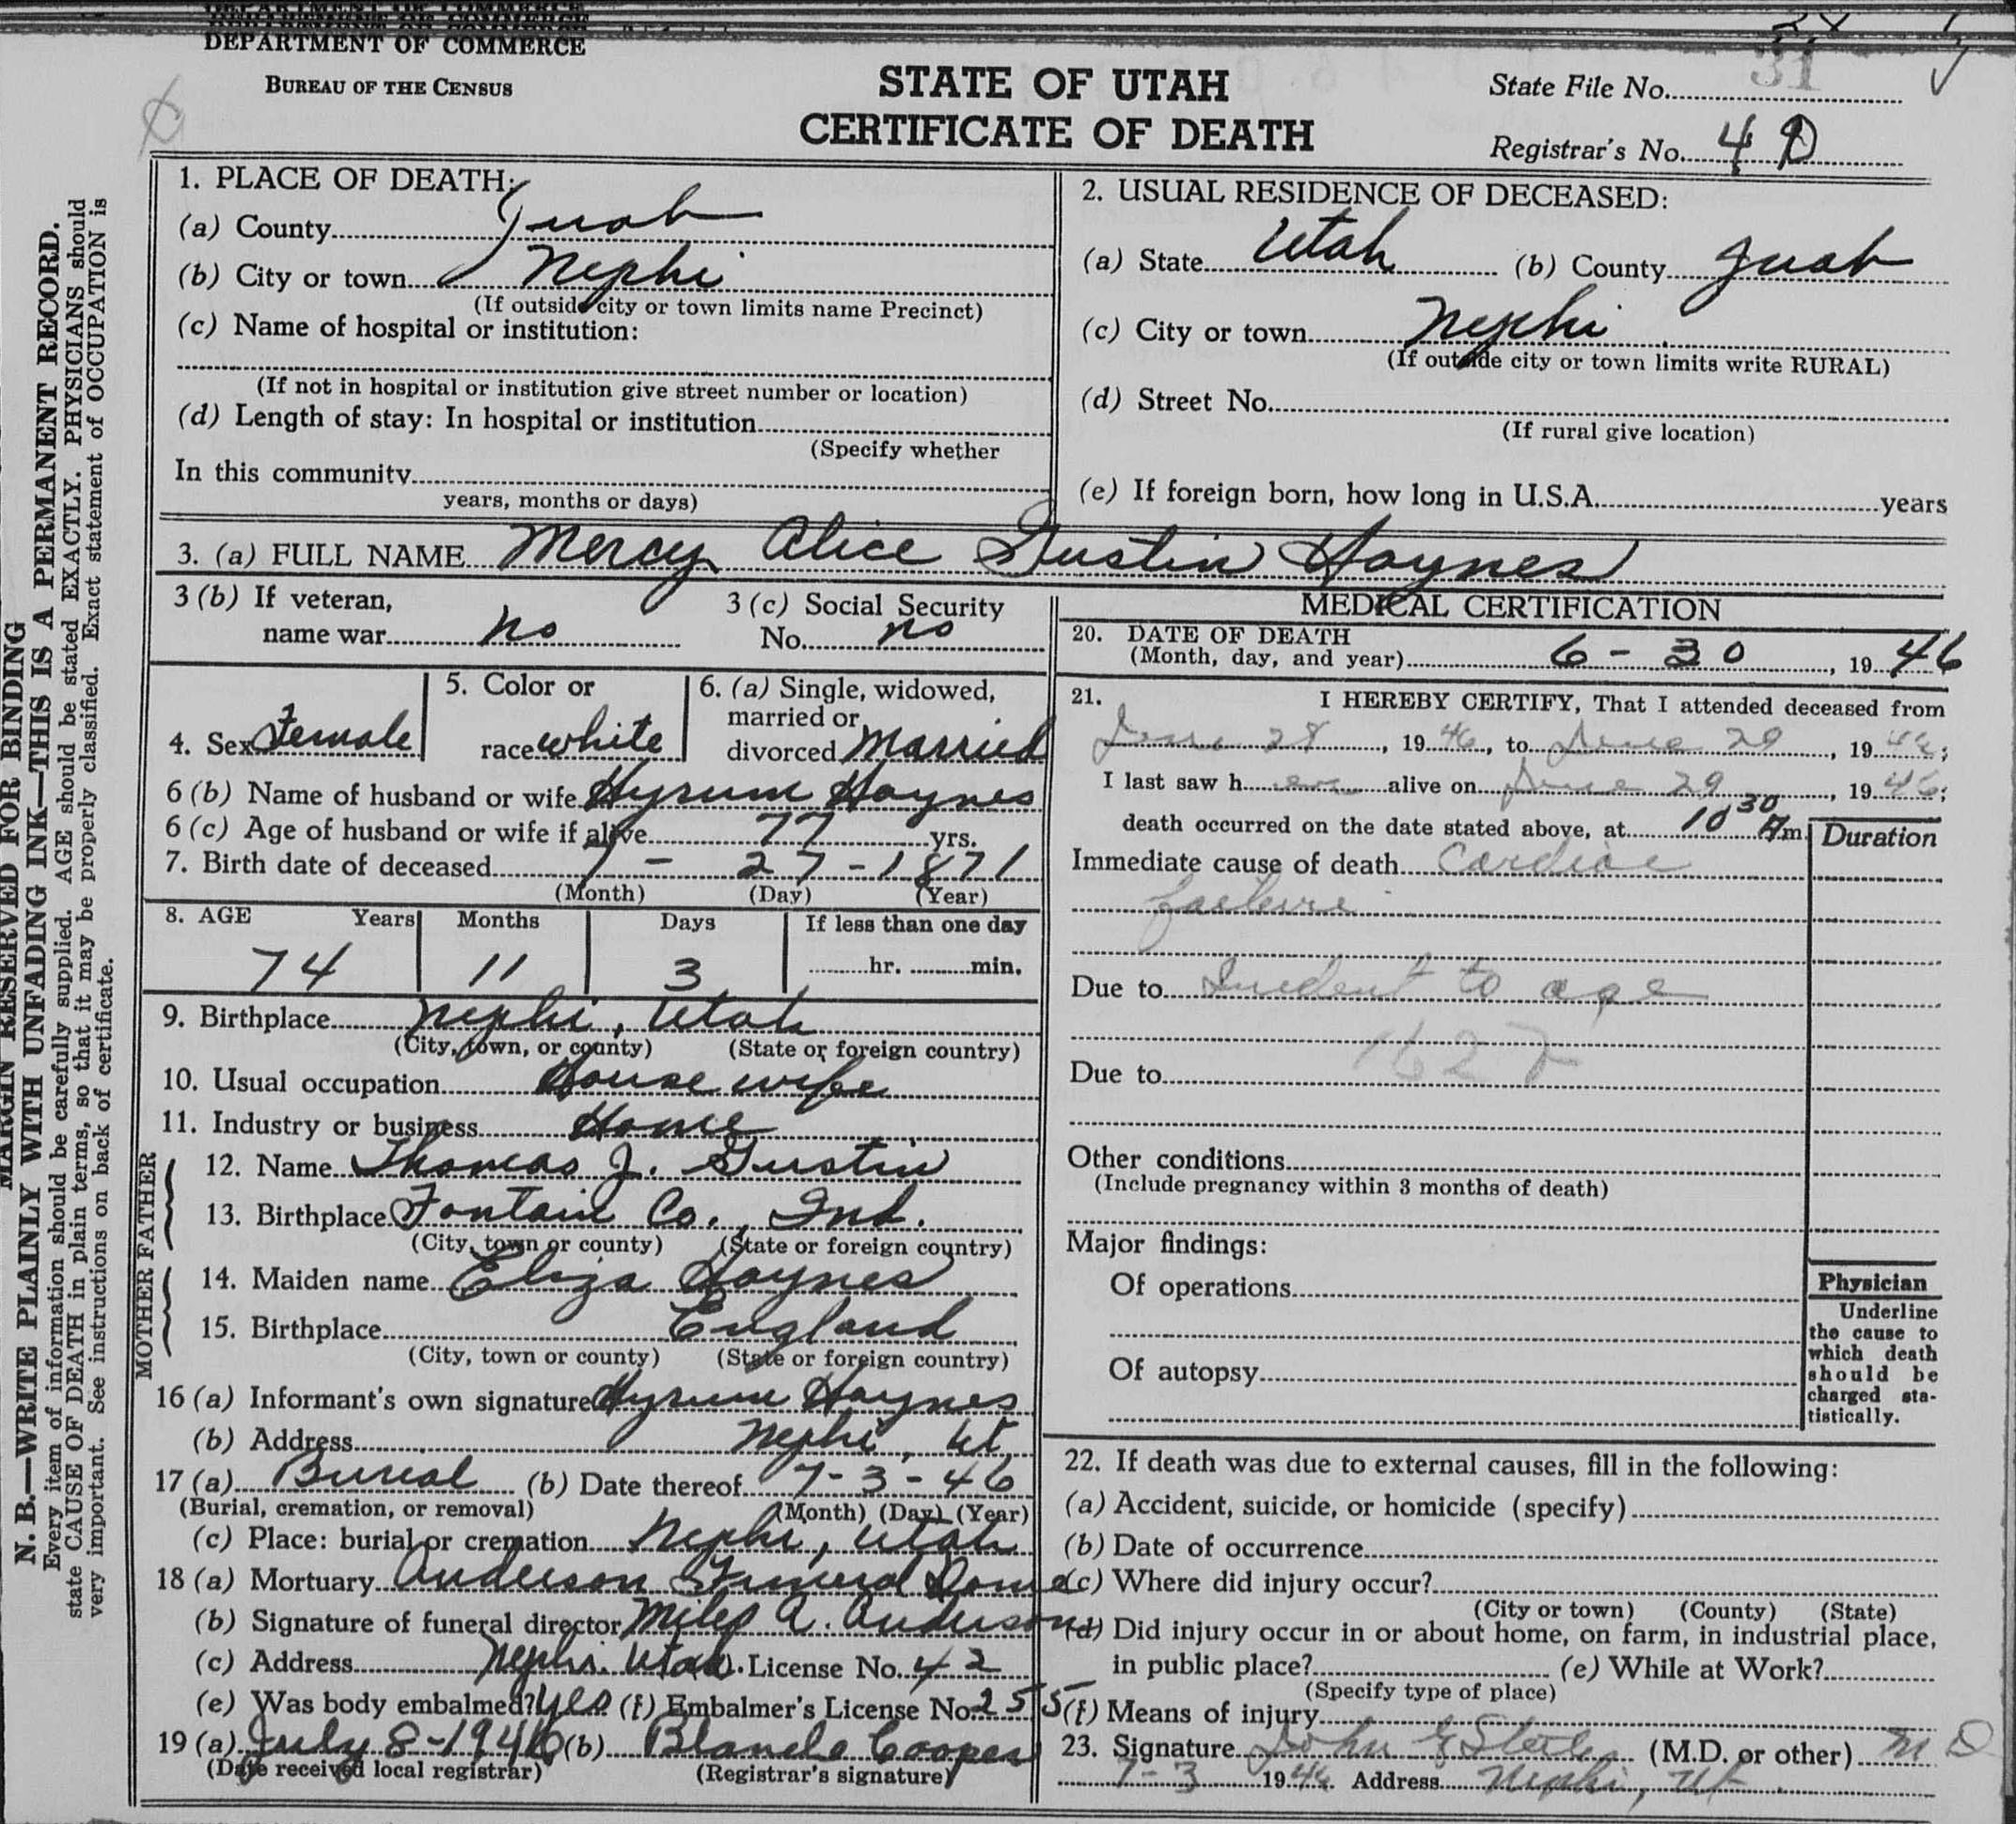 DEPARTMENT OF COMMERCE
BUREAU OF THE CENSUS
STATE OF UTAH
CERTIFICATE OF DEATH
State File No. 31
Registrar's No. 40
MARGIN RESERVED FOR BINDING
N. B.—WRITE PLAINLY WITH UNFADING INK—THIS IS A PERMANENT RECORD.
Every item of information should be carefully supplied. AGE should be stated EXACTLY. PHYSICIANS should
state CAUSE OF DEATH in plain terms, so that it may be properly classified. Exact statement of OCCUPATION is
very important. See instructions on back of certificate.
1. PLACE OF DEATH:
(a) County Juab
(b) City or town Nephi
(If outside city or town limits name Precinct)
(c) Name of hospital or institution:
(If not in hospital or institution give street number or location)
(d) Length of stay: In hospital or institution
(Specify whether
In this community
years, months or days)
2. USUAL RESIDENCE OF DECEASED:
(a) State Utah (b) County Juab
(c) City or town Nephi
(If outside city or town limits write RURAL)
(d) Street No.
(If rural give location)
(e) If foreign born, how long in U.S.A. years
3. (a) FULL NAME Mercy Alice Gustin Haynes
3 (b) If veteran,
name war no
3 (c) Social Security
No. no
4. Sex Female
5. Color or
race white
6. (a) Single, widowed,
married or
divorced Married
6 (b) Name of husband or wife Hyrum Haynes
6 (c) Age of husband or wife if alive 77 yrs.
7. Birth date of deceased 7 - 27 - 1871
(Month) (Day) (Year)
8. AGE Years Months Days If less than one day
74 11 3 hr. min.
9. Birthplace Nephi, Utah
(City, town, or county) (State or foreign country)
10. Usual occupation House wife
11. Industry or business Home
FATHER
12. Name Thomas J. Gustin
13. Birthplace Fontain Co., Ind.
(City, town or county) (State or foreign country)
MOTHER
14. Maiden name Eliza Haynes
15. Birthplace England
(City, town or county) (State or foreign country)
16 (a) Informant's own signature Hyrum Haynes
(b) Address Nephi, Ut.
17 (a) Burial (b) Date thereof 7-3-46
(Burial, cremation, or removal) (Month) (Day) (Year)
(c) Place: burial or cremation Nephi, Utah
18 (a) Mortuary Anderson Funeral Home
(b) Signature of funeral director Miles A. Anderson
(c) Address Nephi, Utah. License No. 42
(e) Was body embalmed? yes (f) Embalmer's License No. 255
19 (a) July 8-1946 (b) Blanche Cooper
(Date received local registrar) (Registrar's signature)
MEDICAL CERTIFICATION
20. DATE OF DEATH
(Month, day, and year) 6 - 30, 1946
21. I HEREBY CERTIFY, That I attended deceased from
June 28, 1946, to June 29, 1946;
I last saw her alive on June 29, 1946;
death occurred on the date stated above, at 10 30 A m. Duration
Immediate cause of death Cardiac
failure
Due to Incident to age
Due to
Other conditions
(Include pregnancy within 3 months of death)
Major findings:
Of operations
Of autopsy
Physician
Underline
the cause to
which death
should be
charged sta-
tistically.
22. If death was due to external causes, fill in the following:
(a) Accident, suicide, or homicide (specify)
(b) Date of occurrence
(c) Where did injury occur?
(City or town) (County) (State)
(d) Did injury occur in or about home, on farm, in industrial place,
in public place? (e) While at Work?
(Specify type of place)
(f) Means of injury
23. Signature John G Steele (M.D. or other) M D
7-3 1946 Address Nephi, Ut